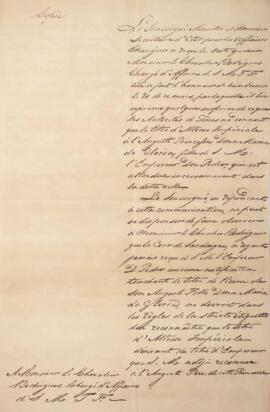 Copie
Le Soussigné Ministre et Premier
Secrétaire d'Etat pour les Affaires
Etrangères a reçu la note que
Monsieur le Chevalier Rodrigues
Chargé d'Affaires de S. M. T. F.
lui a fait l'honneur de lui adresser
le 20 de ce mois, par laquelle il lui
exprime quelque surprise de ce que
les Autorités de Gênes ne donnent
que le titre d'Altesse Impériale
à l'Auguste Princesse Dona Maria
da Gloria, fille de S. M.
l'Empereur Don Pedro, qui est
attendue incessamment dans
la dite ville.
Le Soussigné en répondant
à cette communication, ne peut
se dispenser de faire observer
à Monsieur le Chevalier Rodrigues
que la Cour de Sardaigne, n'ayant
jamais reçu de S. M. l'Empereur
D. Pedro aucune notification
touchant le titre de Reine de
Son Auguste Fille Dona Maria
da Gloria, ne devroit dans
les règles de la stricte étiquette
lui reconnaître que le titre
d'Altesse Impériale
devant le titre d'Empereur
que S. M. a déjà reconnu
à l'Auguste Père de cette Princesse
A Monsieur le Chevalier
Rodrigues Chargé d'Affaires
de S. M. T. F.